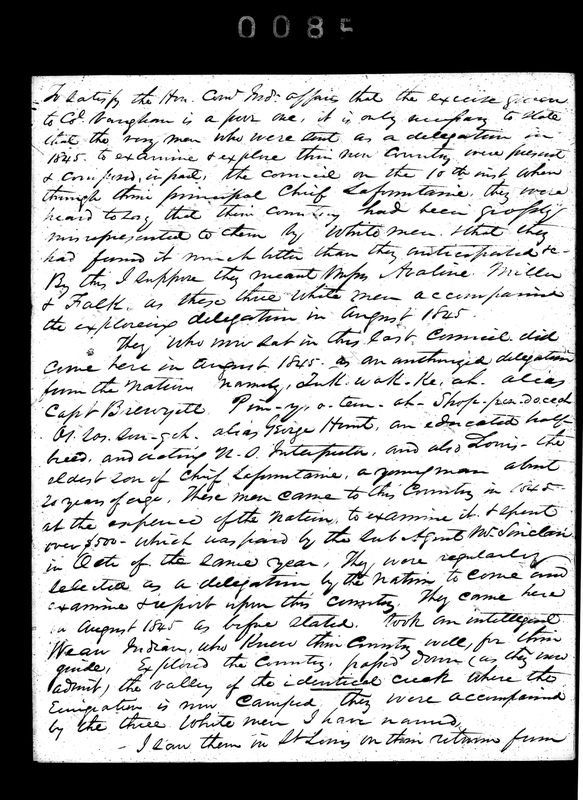 0085
To satisfy the Hon. Com. Ind. affairs that the excuse given
to Col. Vaughan is a poor one, it is only necessary to state
that the very men who were sent as a delegation in
1845. to examine & explore their new Country were present
& composed, in part, the council on the 10th inst when
through their principal Chief Lafountaine they were
heard to say that their country had been grossly
misrepresented to them by White men & that they
had found it much better than they anticipated &c
By this I suppose they meant Avaline. Miller
& Falk, as these three White men accompanied
the exploring delegation in August 1845.
They who now sat in this last Council did
come here in August 1845 as an authorized delegation
from the nation Namely, alias
Capt Brewyett. Pim-y-o-tem-ah-
alias George Hunt, an educated half
breed, and acting U.S. Interpreter, and also Louis- the
eldest son of Chief Lafountaine, a young man about
20 years of age. These men came to this Country in 1845
at the expence of the Nation, to examine it & spent
over $500- which was paid by the Sub Agent Mr Sinclair
in Octr of the same year, They were regularly
selected as a delegation by the nation to come and
examine & report upon this country. They came here
in August 1845 as before stated. Took an intelligent
Wean Indian, who knew this Country well, for their
guide, Explored the Country, passed down (as they now
admit) the valley of the identical creek where the
Emigration is now Camped, they were accompanied
by the three White men I have named,
- I saw them in St Louis on their return from